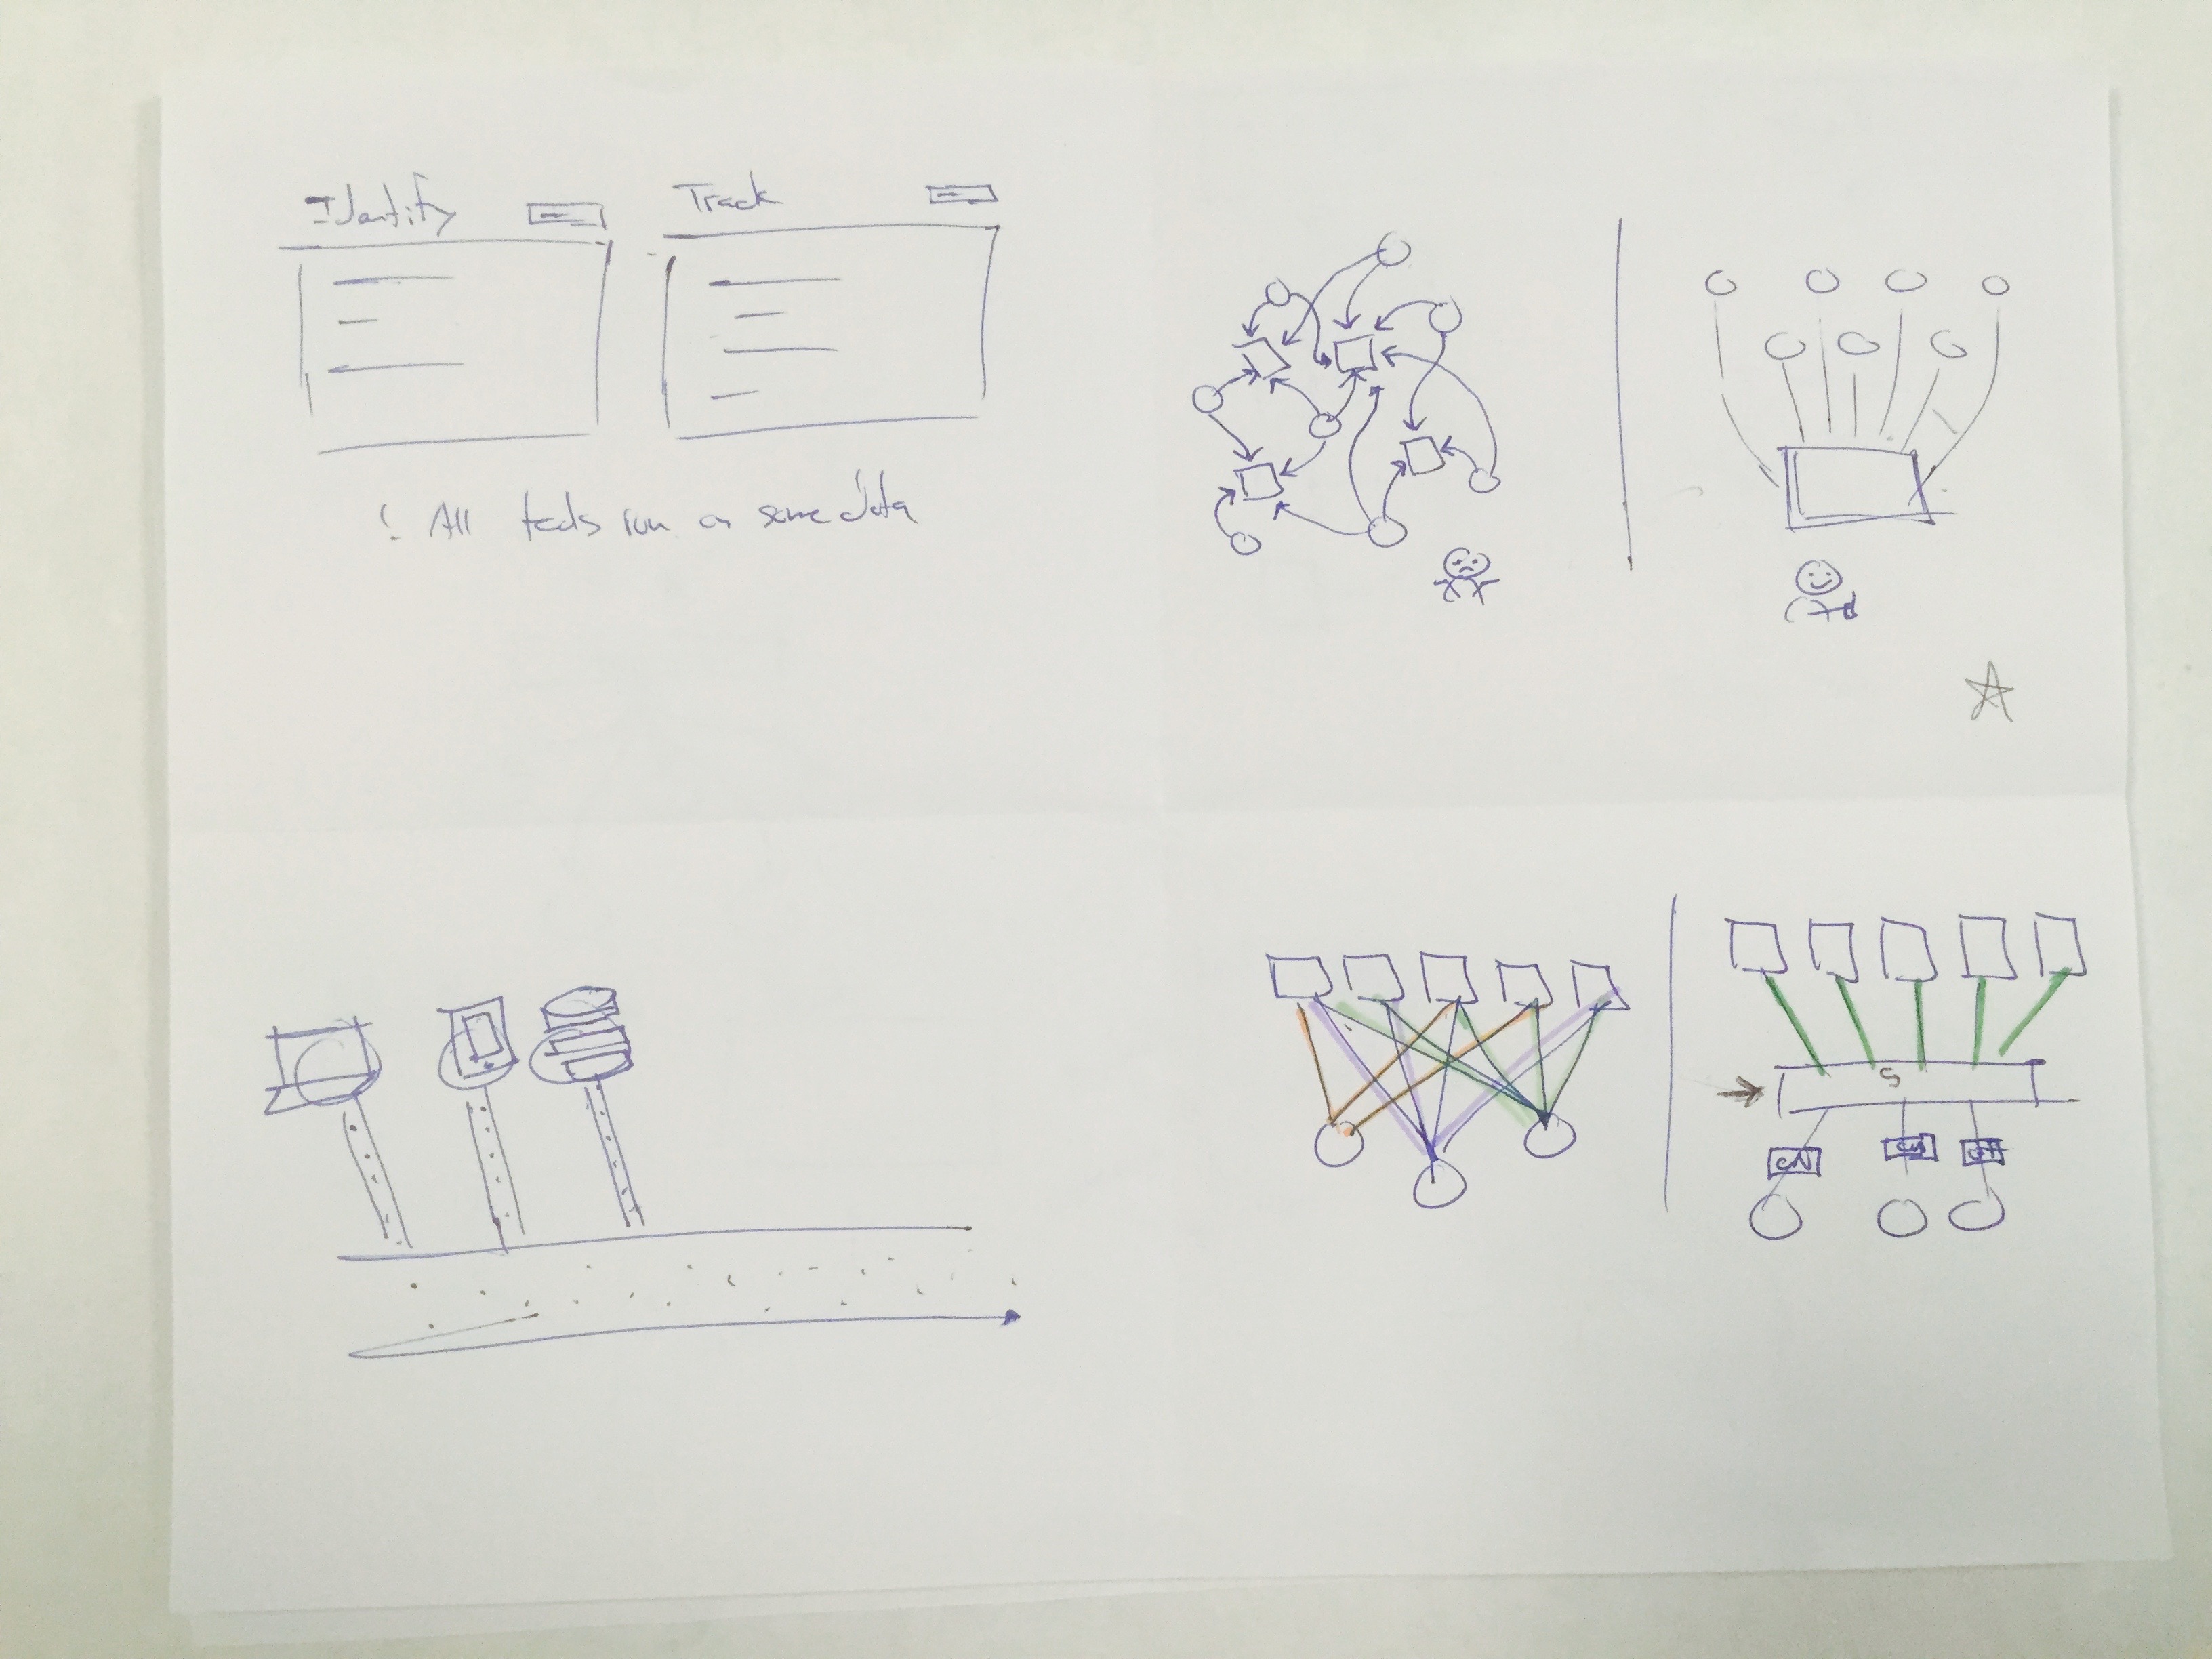 Identify
Track
! All tools run on same data
S